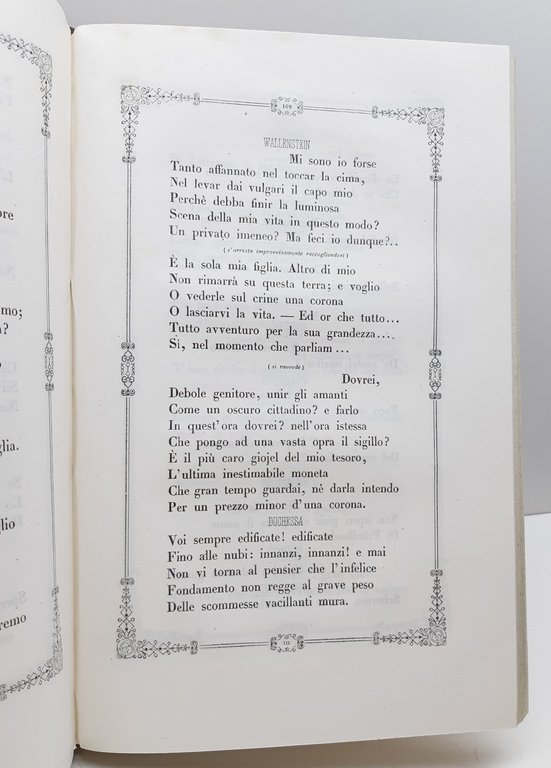 ore
mo;
a?
glia.
glio
remo
109
WALLENSTEIN
Mi sono io forse
Tanto affannato nel toccar la cima,
Nel levar dai vulgari il capo mio
Perchè debba finir la luminosa
Scena della mia vita in questo modo?
Un privato imeneo? Ma feci io dunque?..
(s'arresta improvvisamente raccogliendosi)
È la sola mia figlia. Altro di mio
Non rimarrà su questa terra; e voglio
O vederle sul crine una corona
O lasciarvi la vita. — Ed or che tutto...
Tutto avventuro per la sua grandezza....
Sì, nel momento che parliam ...
(si ravvede)
Dovrei,
Debole genitore, unir gli amanti
Come un oscuro cittadino? e farlo
In quest'ora dovrei? nell'ora istessa
Che pongo ad una vasta opra il sigillo?
È il più caro giojel del mio tesoro,
L'ultima inestimabile moneta
Che gran tempo guardai, nè darla intendo
Per un prezzo minor d'una corona.
DUCHESSA
Voi sempre edificate! edificate
Fino alle nubi: innanzi, innanzi! e mai
Non vi torna al pensier che l'infelice
Fondamento non regge al grave peso
Delle scommesse vacillanti mura.